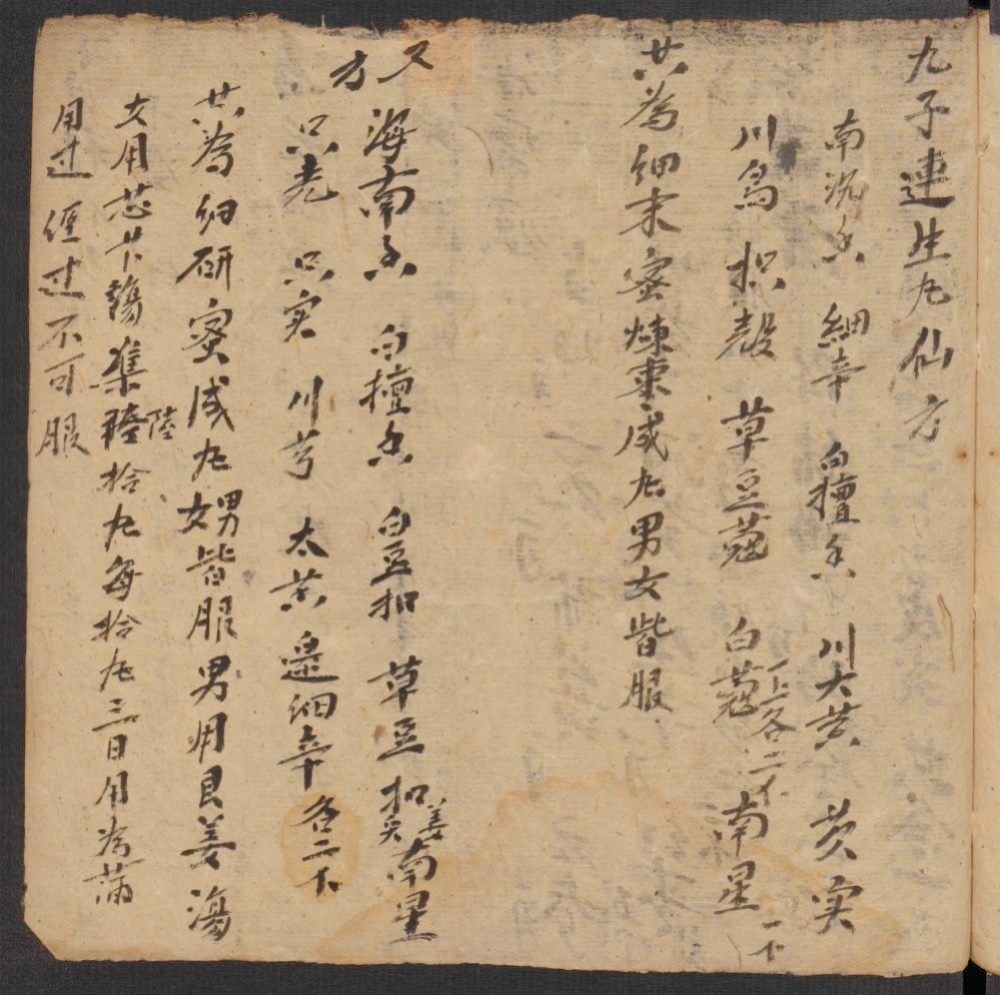 九子連生丸仙方
南沉香 細辛 白擅香 川大黄 黄实
川烏 枳殼 草豆蔻 白蔻 南星
共為細末蜜煉棗成丸男女皆服
又方
海南香 白擅香 白豆扣 草豆扣 姜南星
只壳 只实 川芎 太黄 邊細辛 各二
共為細研蜜成丸男女皆服男用良姜湯
女用芯 湯 集 陸 拾丸每拾丸三日用 滿
用过 经过不可服